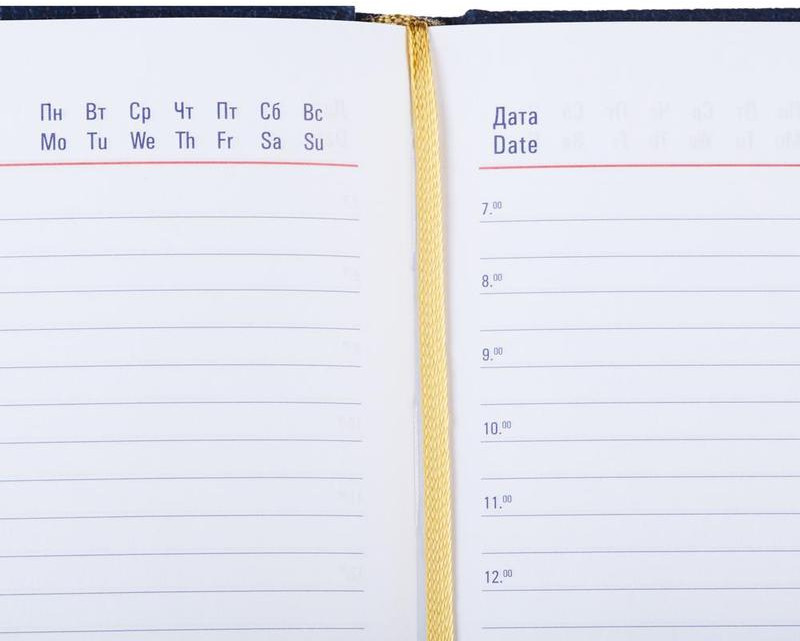 Пн Вт Ср Чт Пт Сб Вс
Mo Tu We Th Fr Sa Su
Дата
Date
7.00
8.00
9.00
10.00
11.00
12.00